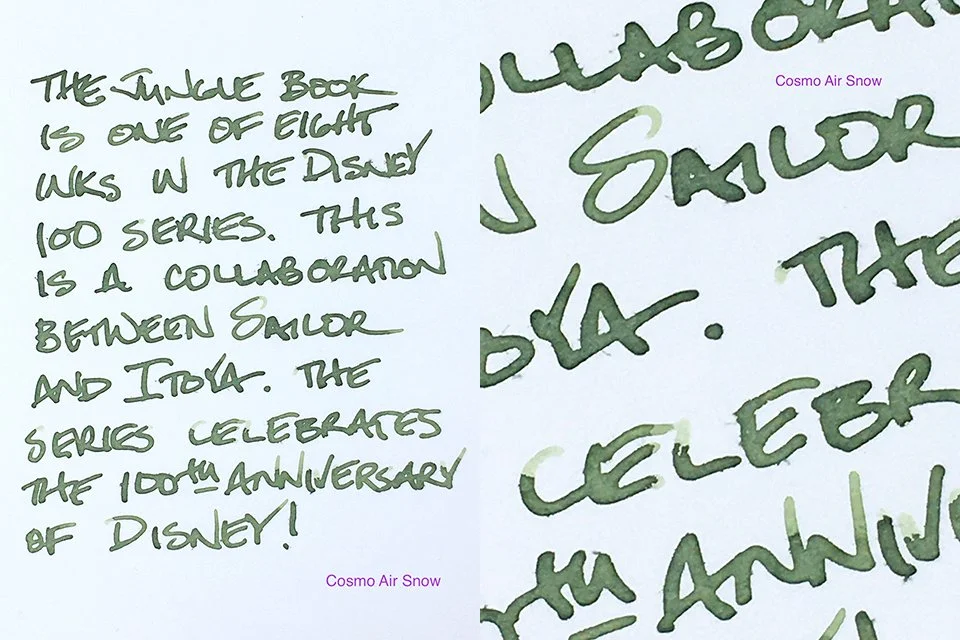 THE JUNGLE BOOK
IS ONE OF EIGHT
INKS IN THE DISNEY
100 SERIES. THIS
IS A COLLABORATION
BETWEEN SAILOR
AND ITOYA. THE
SERIES CELEBRATES
THE 100th ANNIVERSARY
OF DISNEY!
Cosmo Air Snow
OLLABORA
Cosmo Air Snow
N SAILOR
OYA. THE
CELEBR
th ANNIV